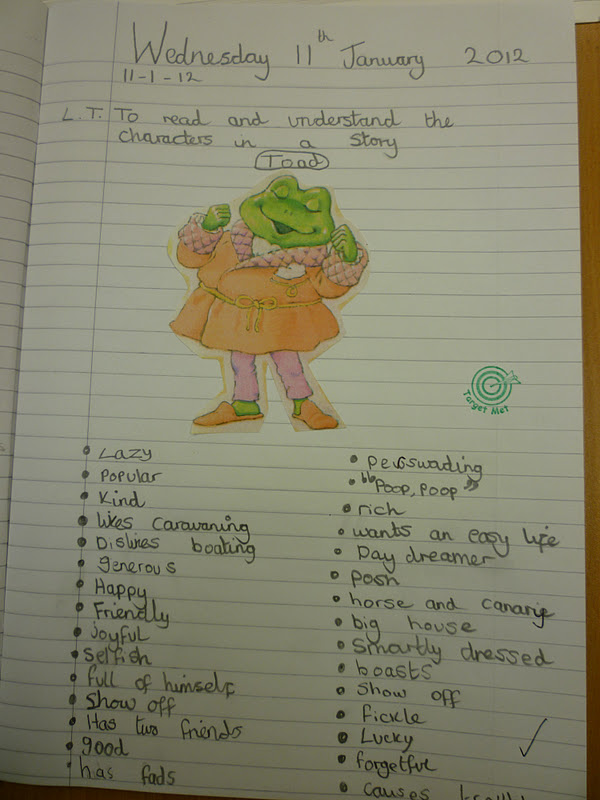 Wednesday 11th January 2012
11-1-12
L.T. To read and understand the
characters in a story
Toad
Target Met
Lazy
Popular
Kind
likes caravaning
Dislies boating
generous
Happy
Friendly
joyful
selfish
full of himself
Show off
Has two friends
good
has fads
perswading
"Poop, Poop"
rich
wants an easy life
Day dreamer
posh
horse and canarie
big house
Smartly dressed
boasts
Show off
fickle
Lucky
forgetful
causes